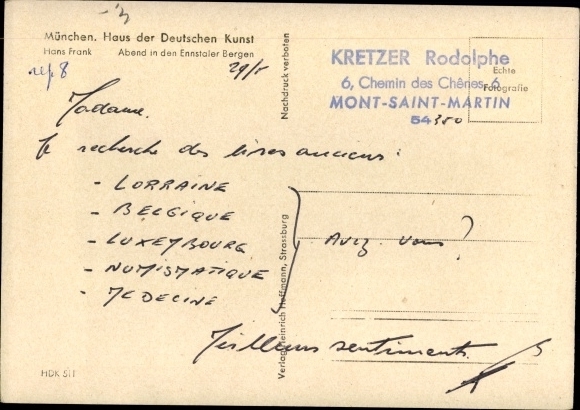 München. Haus der Deutschen Kunst
Hans Frank Abend in den Ennstaler Bergen
rep 8
29/5
Nachdruck verboten
KRETZER Rodolphe
6, Chemin des Chênes, 6
MONT-SAINT-MARTIN
54350
Echte
Fotografie
Madame.
Je recherche des livres anciens :
- LORRAINE
- BELGIQUE
- LUXEMBOURG
- NUMISMATIQUE
- MEDECINE
Avez vous ?
Verlag Heinrich Hoffmann, Strassburg
Meilleurs sentiments.
HDK 511